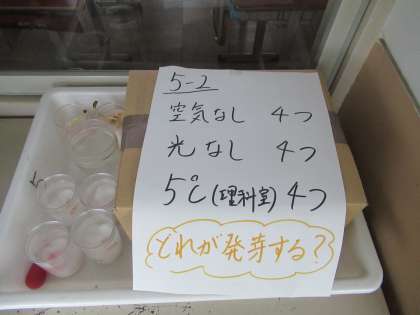 5-2
空気なし 4つ
光なし 4つ
5℃(理科室) 4つ
どれが発芽する?